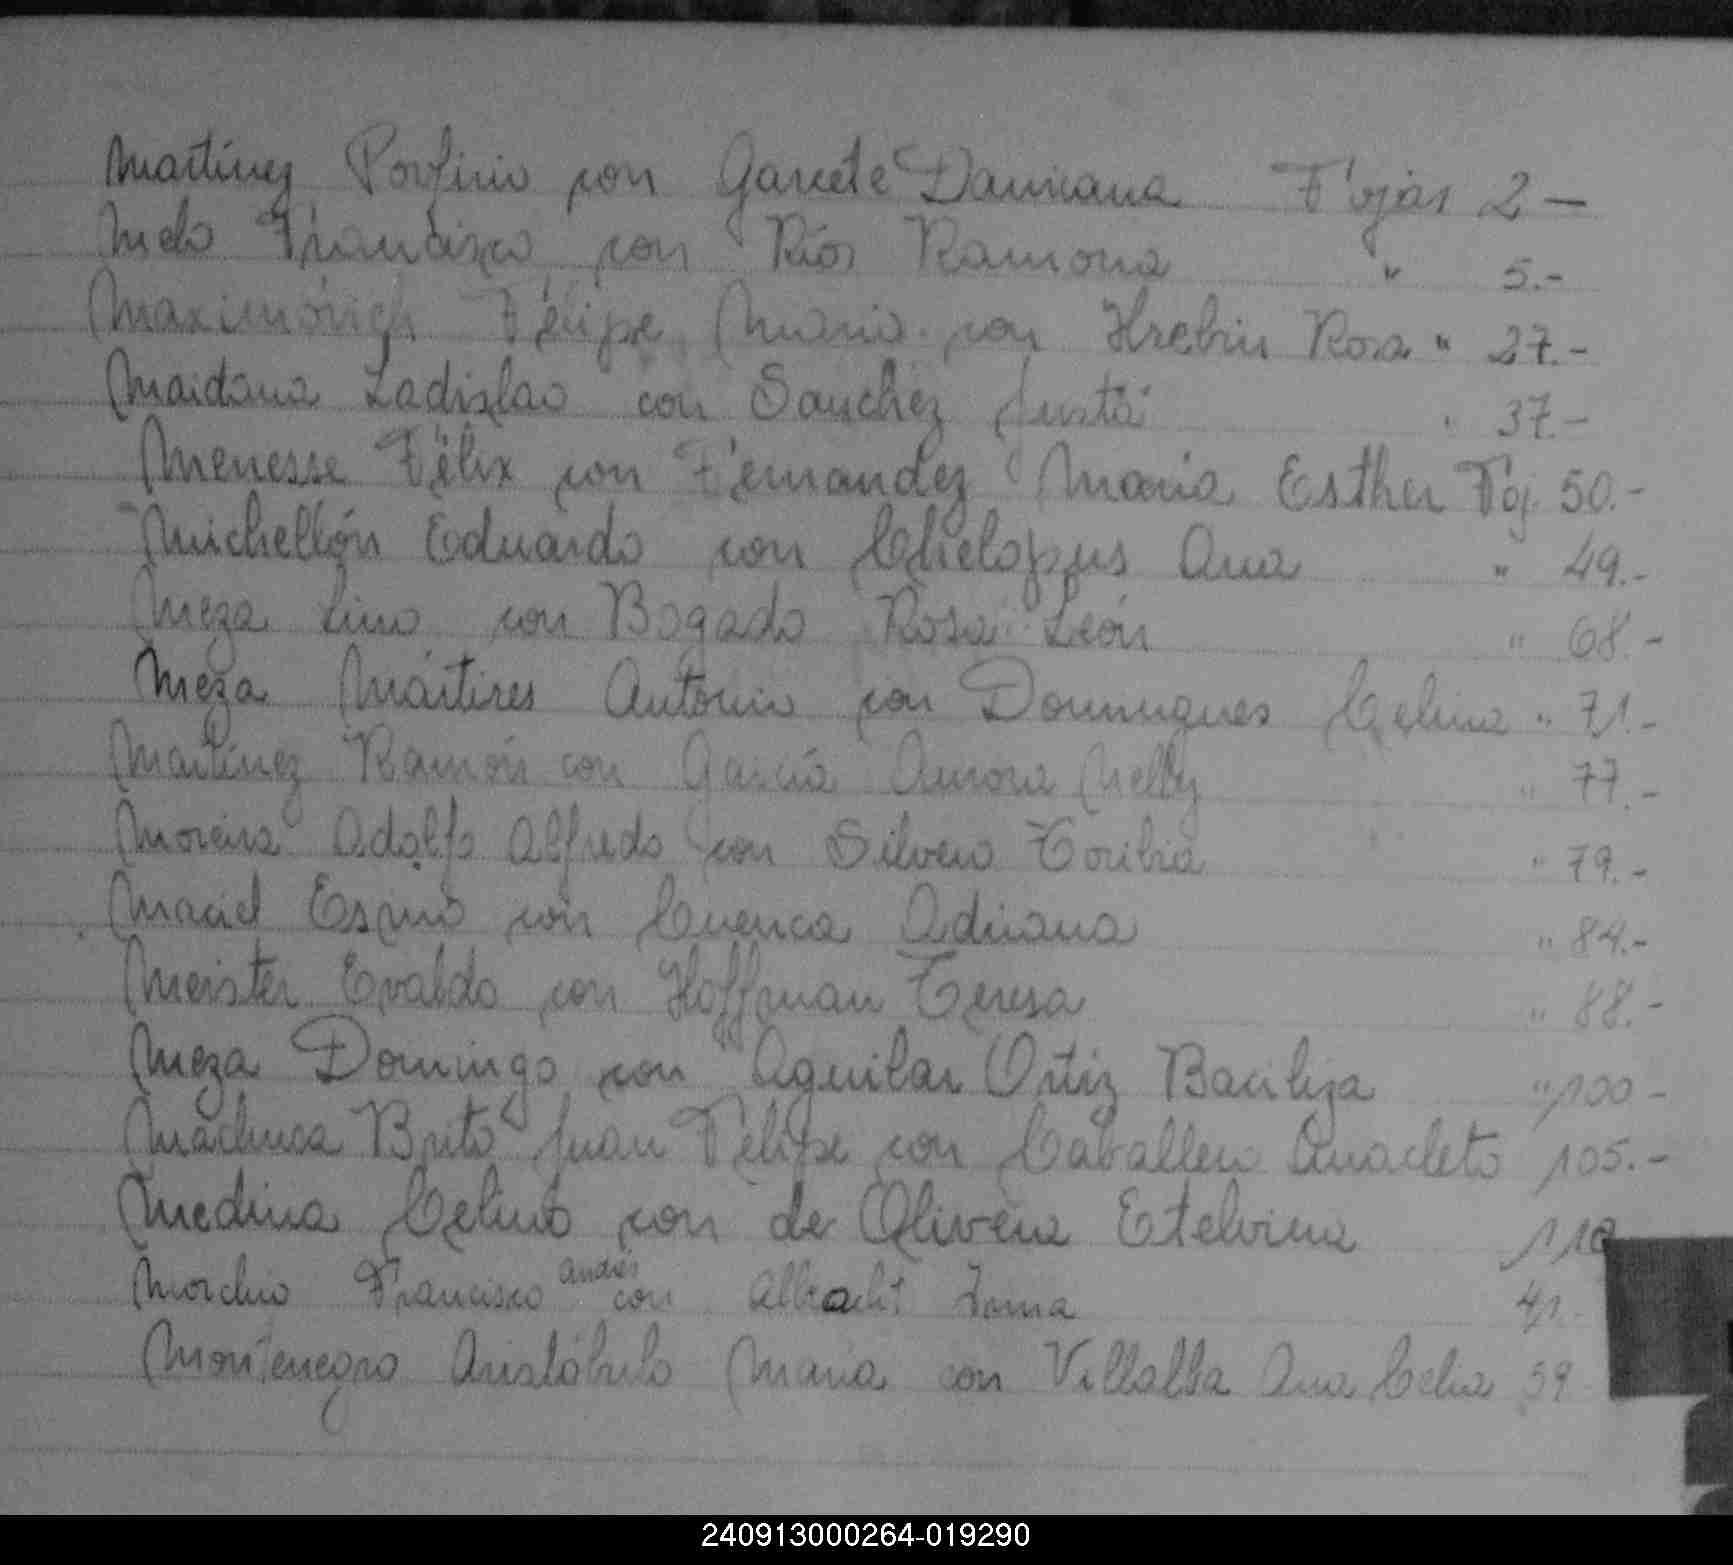 Martínez Porfirio con Garcete Damiana Fojas 2 —
Melo Francisco con Ríos Ramona " 5.-
Maximóvich Felipe Mario con Hrebin Rosa " 27.-
Maidana Ladislao con Sanchez Justa " 37.-
Menesse Félix con Fernandez Maria Esther Foj. 50.-
Michellón Eduardo con Chelopus Ana " 49.-
Meza Lino con Bogado Rosa León " 68.-
Meza Mártires Antonio con Domingues Celina " 71.-
Martínez Ramón con García Aurora Nelly " 77.-
Moreira Adolfo Alfredo con Silvero Toribia " 79.-
Maciel con Cuenca Adriana " 84.-
Meister Evaldo con Hoffman Teresa " 88.-
Meza Domingo con Aguilar Ortiz Baciliza " 100 -
Machuca Brito Juan Felipe con Caballero Anacleto 105.-
Medina Celino con de Oliveira Etelvina 110
Morchio Francisco Andrés con Albracht Irma 41.-
Montenegro Aristóbulo Maria con Villalba Ana Celia 59
240913000264-019290